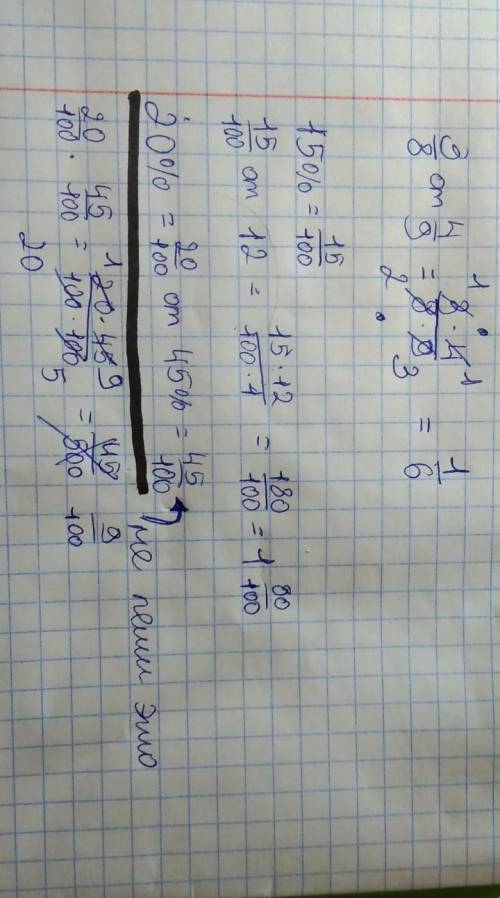 3/8 от 4/9 = 3 · 4 / 8 · 9 = 1/6
15% = 15/100
15/100 от 12 = 15 · 12 / 100 · 1 = 180/100 = 1 80/100
20% = 20/100 от 45% = 45/100
не пеши это
20/100 · 45/100 = 20 · 45 / 100 · 100 = 45/500 9/100